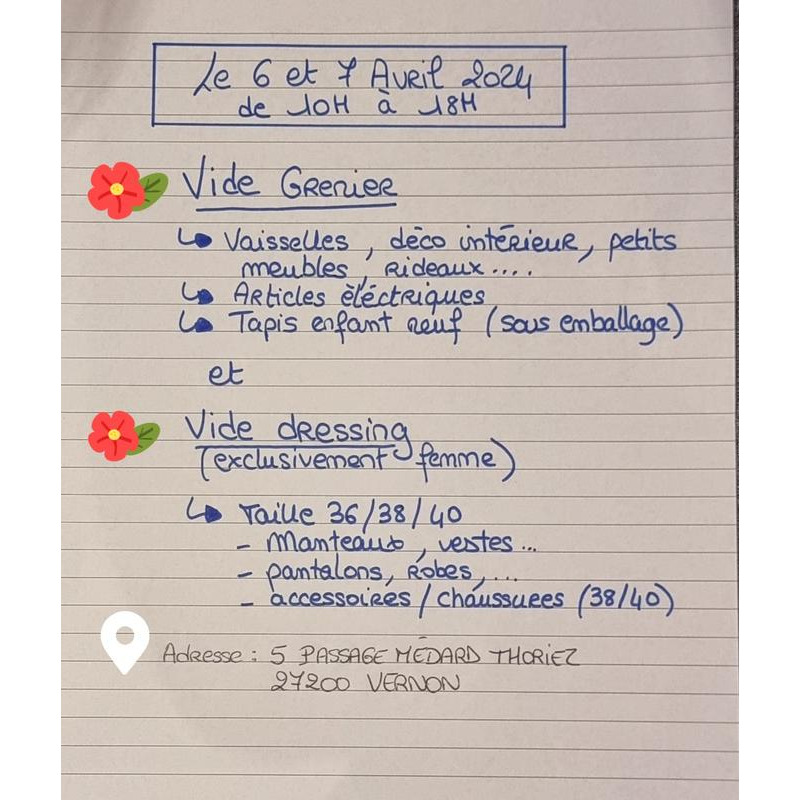 Le 6 et 7 Avril 2024
de 10H à 18H
Vide Grenier
Vaisselles, déco intérieur, petits
meubles, rideaux....
Articles éléctriques
Tapis enfant neuf (sous emballage)
et
Vide dressing
(exclusivement femme)
Taille 36/38/40
- Manteaux, vestes...
- pantalons, Robes,...
- accessoires / chaussures (38/40)
Adresse : 5 PASSAGE MÉDARD THORIEZ
27200 VERNON